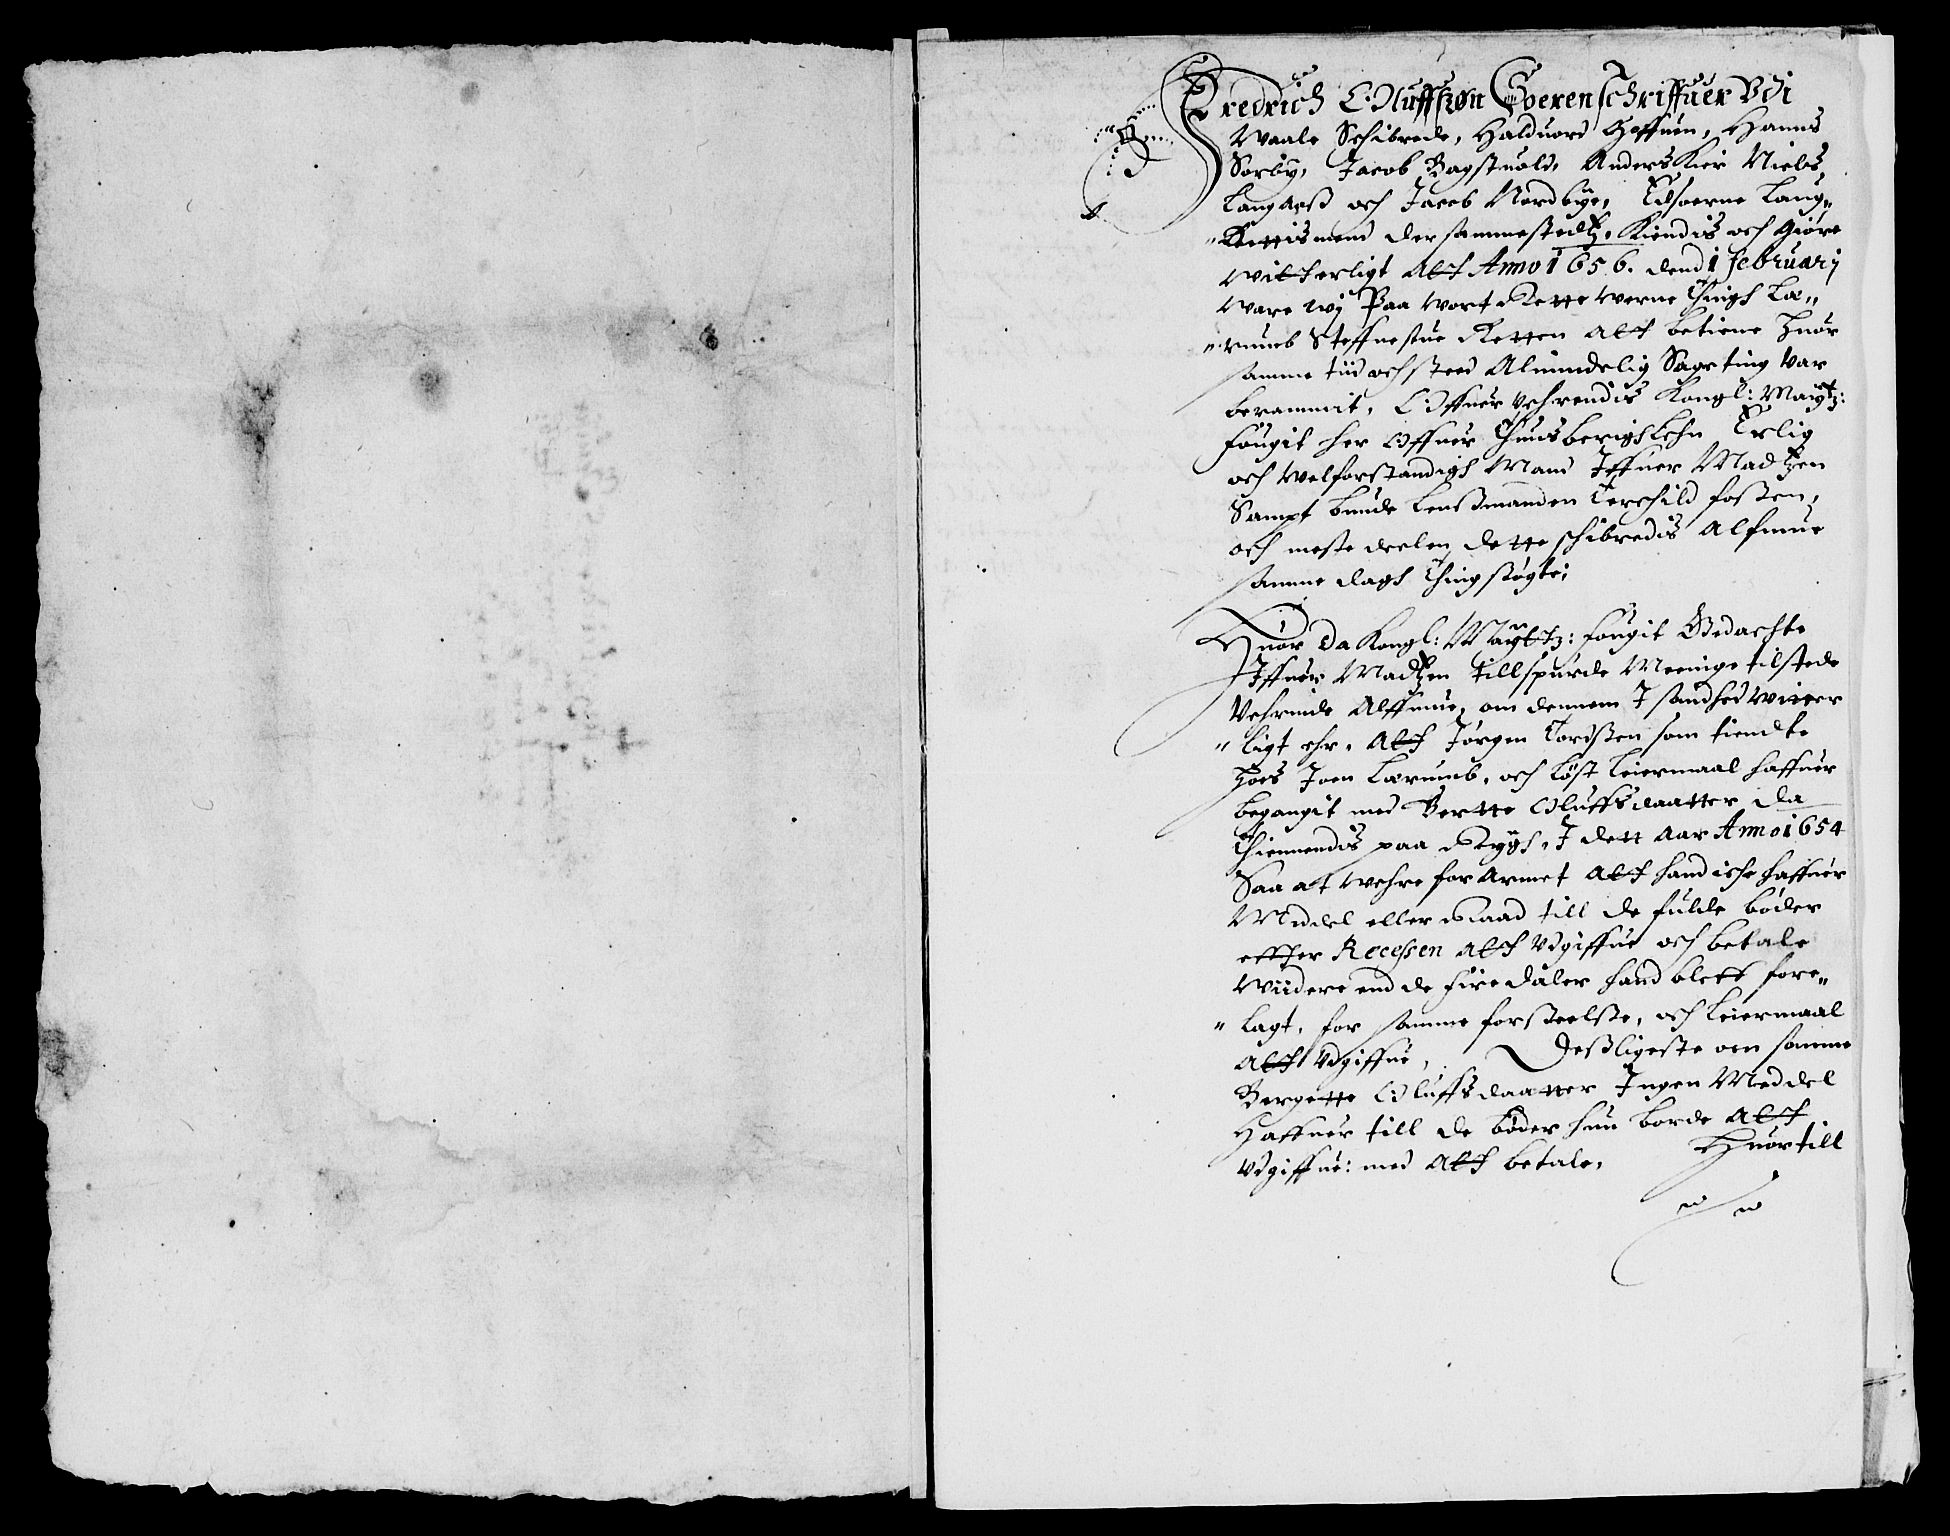 Fredrich Oluffszøn Sorenschriffuer Vdi
Waale Schibrede, Halduord Heffuen, Hanns
Sorby, Jacob Bagstuold, Anders Kier Niels
Langaess och Jacob Nordbye, Edsoerne Laug„
„Rettismend der sammestedtz, Kiendis och Giøre
witterligt Att Anno 1656. dend 1 februarj
ware wj Paa wort Rette werne Tings Læ„
„rumb Steffnestue Retten att betiene huor
samme tiid och sted Almindelig Sageting var
berammit, Offuer vehrendis Kongl: Maÿtz:
fougit her offuer Tunsberigs Lehn Erlig
och welforstandigh Mand Iffuer Madtzen
Sampt bunde Lenßmanden Terchild foßen,
och meste deelen dette schibredis Almue
samme dags Tingsøgte;
Huor da Kongl: Maÿttz: fougit Bedachte
Iffuer Madtzen tillspurde Meenige tilstede
Vehrinde Allmue, om dennem I sandhed witter
„ligt ehr, Att Jørgen Tordßen som tiendte
hoes Joen Lærumb, och Løst Leiermaal haffuer
begangit med Bertte Oluffsdaatter da
Thiennendis paa Rygh, I dett Aar Anno 1654
Saa at wehre forarmet att hand iche haffuer
Middel eller Raad till de fulde bøder
effter Recessen att Vdgiffue och betale
Wiidere end de fire daler hand bleff fore„
„lagt, for samme forseelße, och Leiermaal
att Vdgiffue, Deßligeste om samme
Bergette Oluffsdaatter Ingen Meddel
Haffuer till de bøder hun borde att
Vdgiffue: med att betale, Huortill